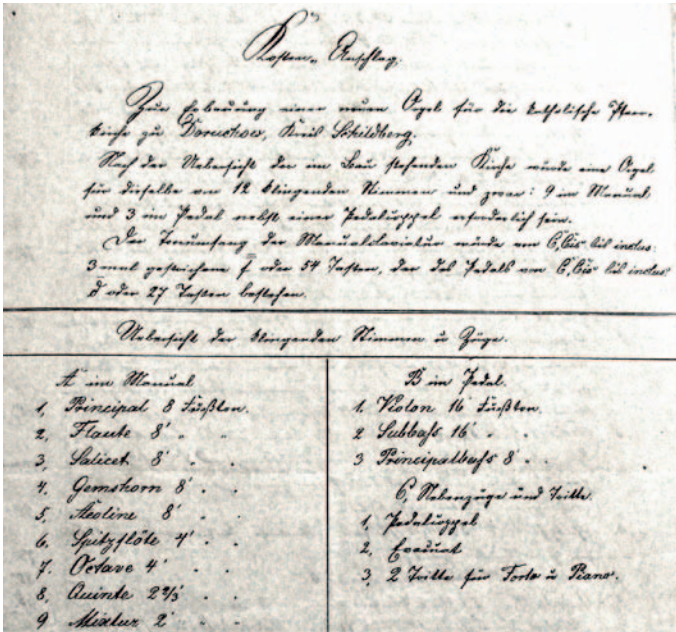 Kosten-Anschlag.
Zur Erbauung einer neuen Orgel für die katholische Pfarr-
kirche zu Doruchow, Kreis Schildberg.
Nach der Uebersicht der im Bau stehenden Kirche würde eine Orgel
für dieselbe von 12 klingenden Stimmen und zwar: 9 im Manual
und 3 im Pedal nebst einer Pedalcoppel erforderlich sein.
Der Tonumfang der Manualclaviatur würde von C, Cis bis inclus:
3 mal gestrichene f̄ oder 54 Tasten, der des Pedals von C, Cis bis inclus:
d̄ oder 27 Tasten bestehen.
Uebersicht der klingenden Stimmen u Züge.
A im Manual
1, Principal 8 Fußton.
2, Flaute 8' " "
3, Salicet 8' " "
4, Gemshorn 8' " "
5, Aeoline 8' " "
6. Spitzflöte 4' " "
7. Octave 4' " "
8, Quinte 2⅔' " "
9 Mixtur 2' " "
B im Pedal.
1. Violon 16 Fußton.
2 Subbaß 16' " "
3 Principalbaß 8' " "
C, Nebenzüge und Tritte.
1, Pedalcoppel
2, Evacuat
3, 2 Tritte für Forte u Piano.